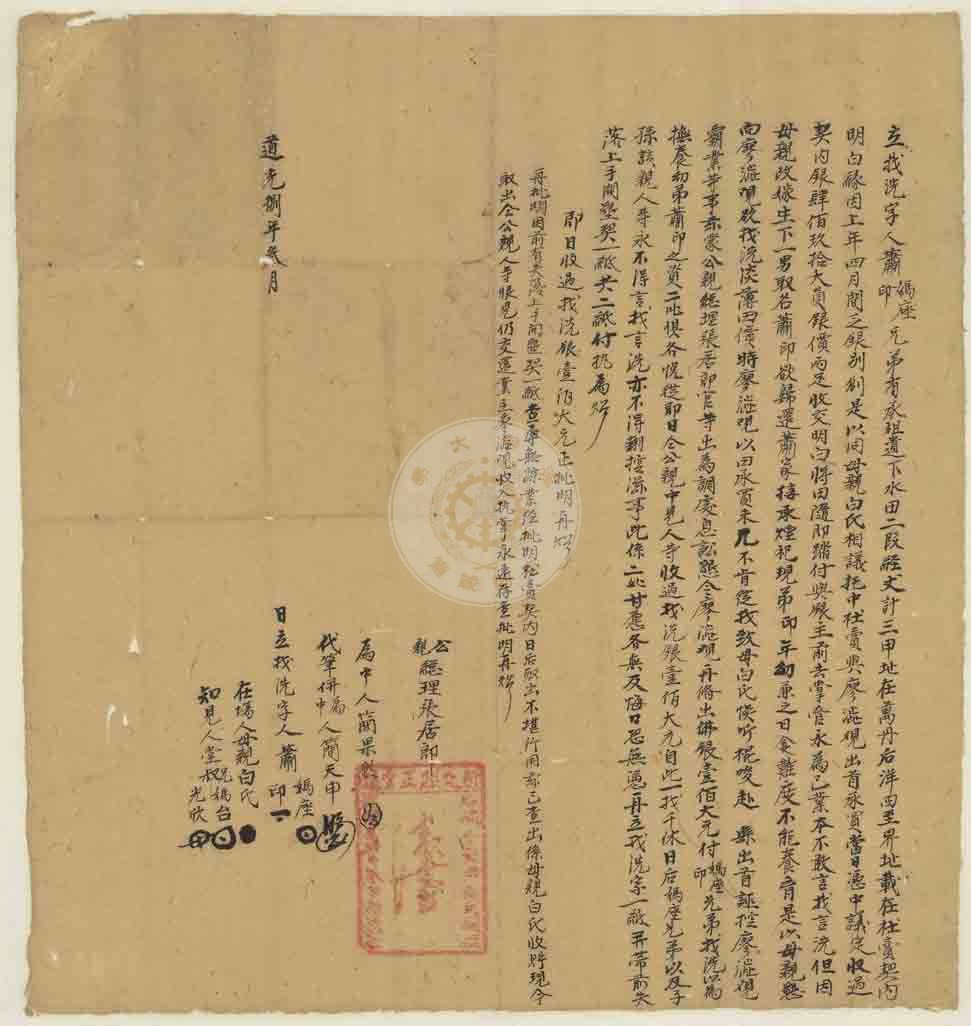 立找洗字人蕭媽座印兄弟有承祖遺下水田二段經丈計三甲址在萬丹后洋四至界址載在杜賣契內
明白緣因上年四月間乏銀別創是以同母親白氏相議托中杜賣與廖澁observe出首承買當日憑中議定收過
契內銀肆佰玖拾大員銀價兩足收交明白將田隨即踏付與銀主前去掌管永為己業本不敢言找言洗但因
母親改嫁生下一男取名蕭印欲歸還蕭家接承煙祀現弟印年幼兼之日食難度不能養育是以母親懇
向廖觀欲找洗淡薄田價時廖觀以田承買未几不肯從找致母白氏候听棍唆赴 縣出首誣控廖觀
霸業等事亦蒙公親總理張居郎官等出為調處息訟懇令廖觀再備出佛銀壹佰大元付媽座印兄弟找洗以為
撫養幼弟蕭印之資二比俱各悅從即日仝公親中見人等收過找洗銀壹佰大元自此一找千休日后媽座兄弟以及子
孫該親人等永不得言找言洗亦不得翻控滋事此係二比甘愿各無反悔口恐無憑再立找洗字一紙并帶前失
落上手開墾契一紙共二紙付执為炤
即日收過找洗銀壹佰大元正批明再炤
再批明因前有失落上手開墾契一紙查尋無踪業經批明杜賣契內日后取出不堪行用茲已查出係母親白氏收貯現今
取出仝公親人等眼見仍交還業主廖觀收入执掌永遠存查批明再炤
公親總理張居郎
為中人簡果然
代筆併為中人簡天申
日立找洗字人蕭媽座印
在場人母親白氏
知見人堂兄媽台叔光欣
道光捌年弍月